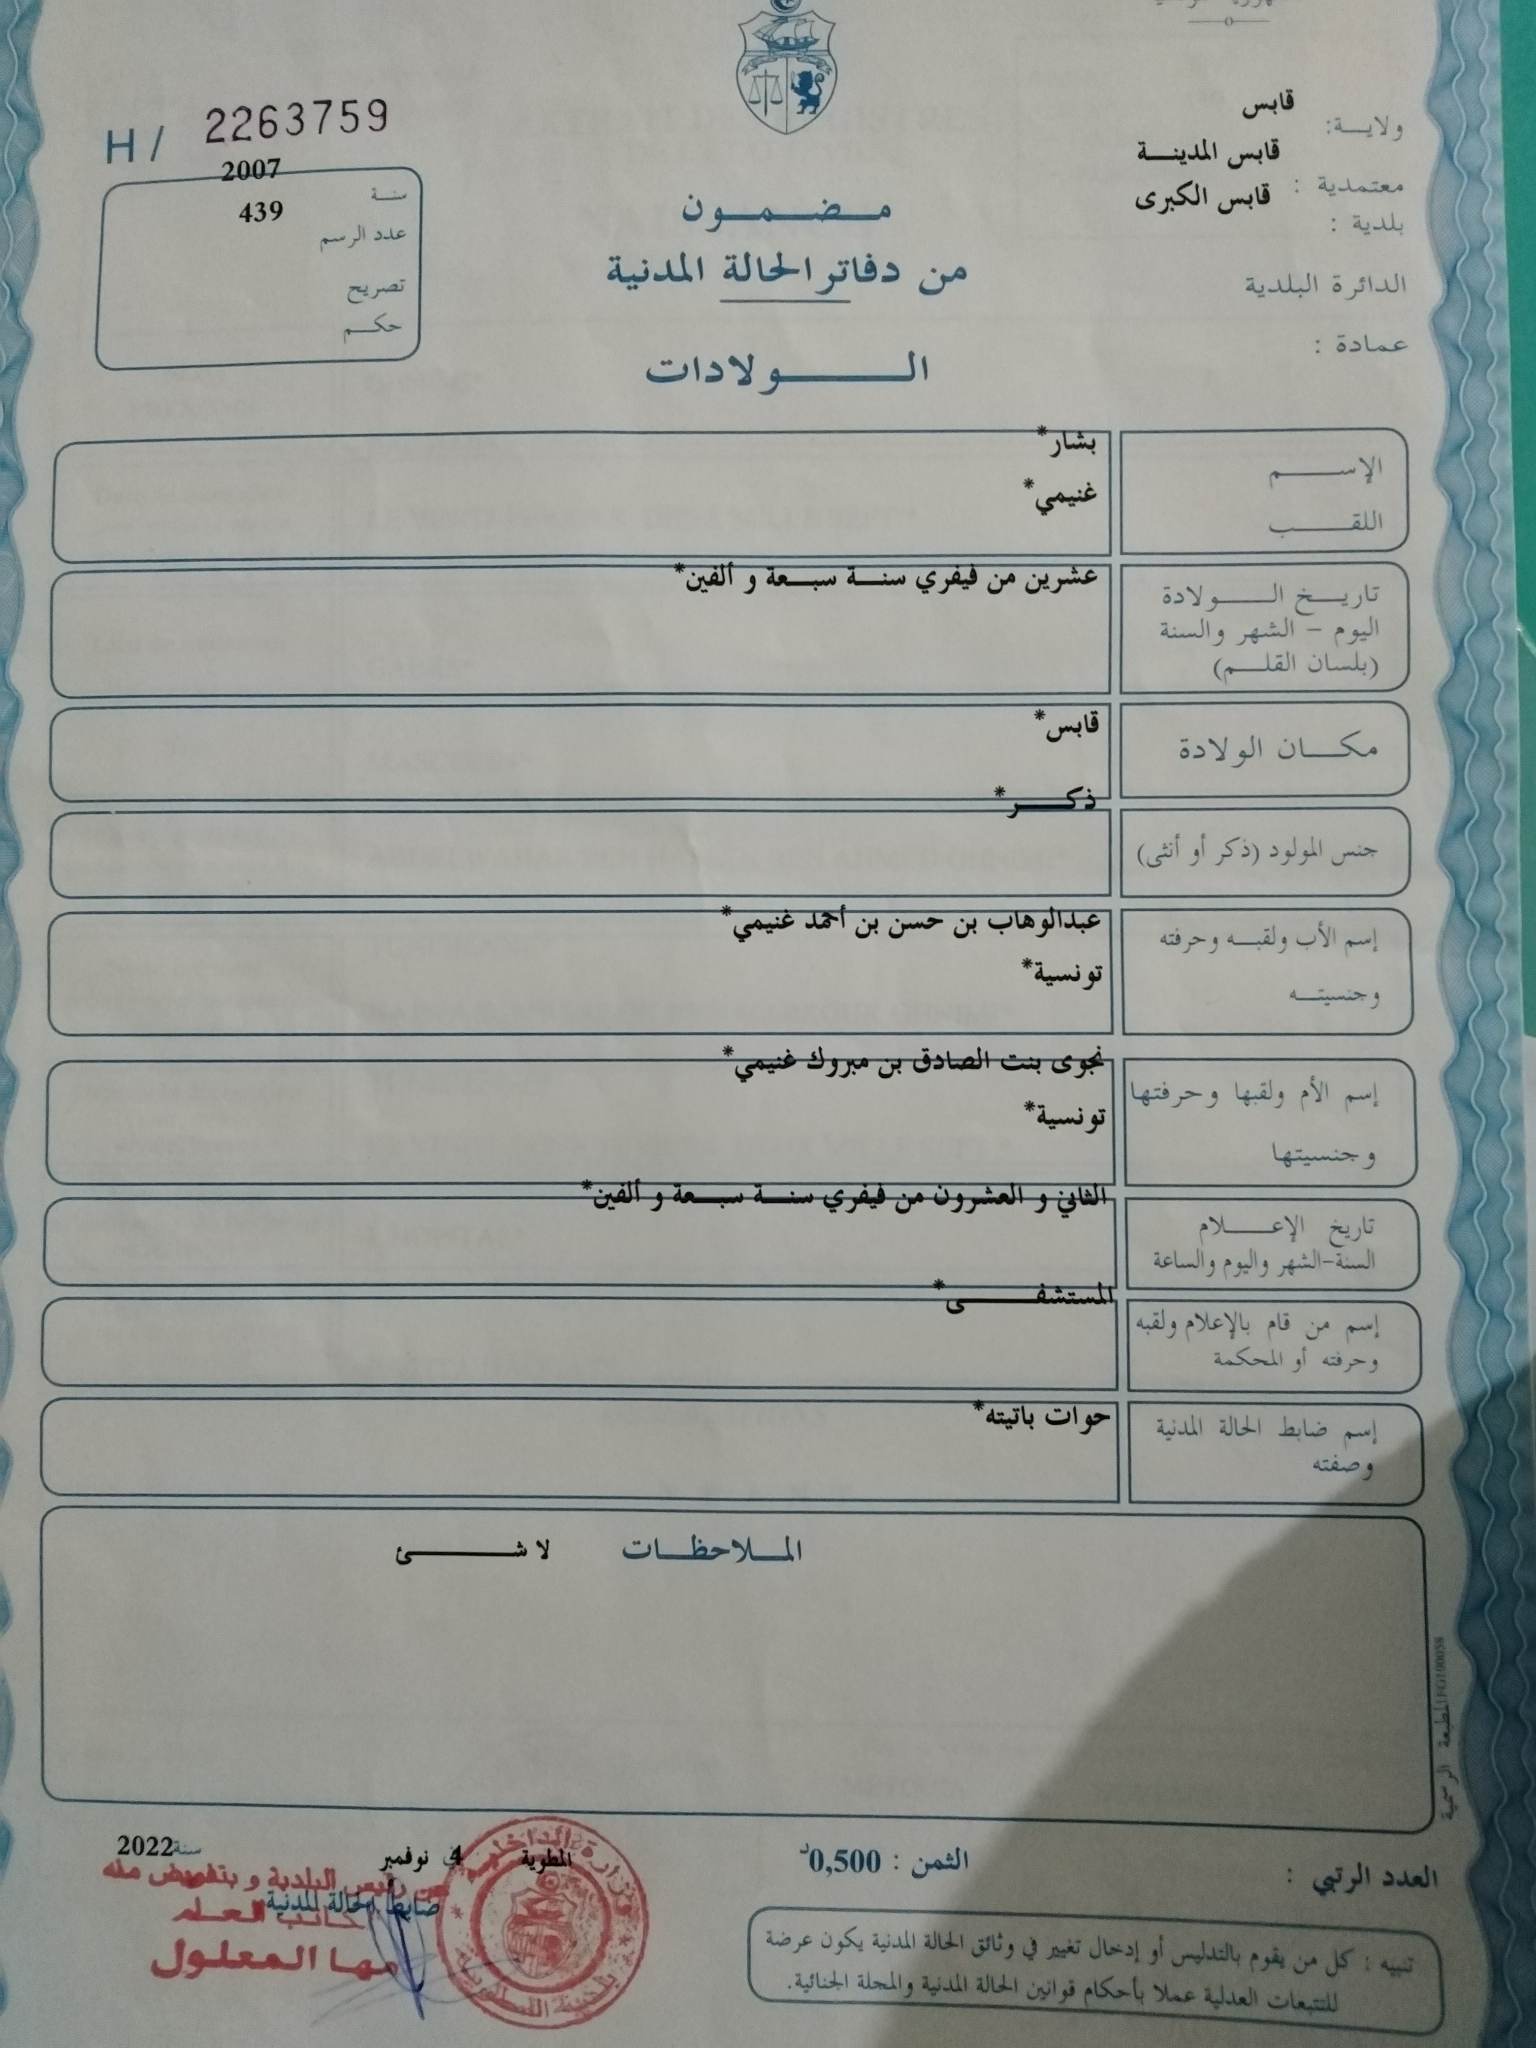 ولاية: قابس
معتمدية : قابس المدينة
بلدية : قابس الكبرى
الدائرة البلدية
عمادة :
H / 2263759
سنة 2007
عدد الرسم 439
تصريح
حكم
مضمون
من دفاتر الحالة المدنية
الولادات
الإسم بشار*
اللقب غنيمي*
تاريخ الولادة عشرين من فيفري سنة سبعة و ألفين*
اليوم - الشهر والسنة
(بلسان القلم)
مكان الولادة قابس*
جنس المولود (ذكر أو أنثى) ذكر*
إسم الأب ولقبه وحرفته عبدالوهاب بن حسن بن أحمد غنيمي*
وجنسيته تونسية*
إسم الأم ولقبها وحرفتها نجوى بنت الصادق بن مبروك غنيمي*
وجنسيتها تونسية*
تاريخ الإعلام الثاني و العشرون من فيفري سنة سبعة و ألفين*
السنة-الشهر واليوم والساعة
إسم من قام بالإعلام ولقبه المستشفى*
وحرفته أو المحكمة
إسم ضابط الحالة المدنية حوات باتيته*
وصفته
الملاحظات لا شئ
المطبعة الرسمية
العدد الرتبي :
الثمن : 0,500د
المطوية في 4 نوفمبر سنة 2022
عن رئيس البلدية و بتفويض منه
ضابط الحالة المدنية
مها المعلول
وزارة الداخلية
بلدية المطوية
تنبيه : كل من يقوم بالتدليس أو إدخال تغيير في وثائق الحالة المدنية يكون عرضة
للتتبعات العدلية عملا بأحكام قوانين الحالة المدنية والمجلة الجنائية.